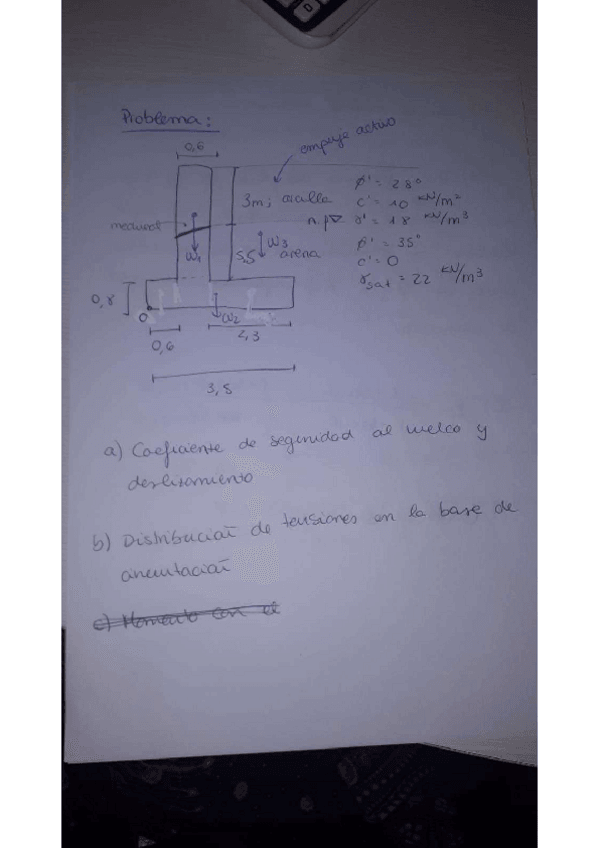 Problema:
0,6
empuje activo
3m; arcilla
φ' = 28°
c' = 10 kN/m²
n.p ▽ γ' = 18 kN/m³
W₁
W₃
5,5
arena
φ' = 35°
c' = 0
γsat = 22 kN/m³
0,8
O
W₂
0,6
2,3
3,5
a) Coeficiente de seguridad al vuelco y
deslizamiento
b) Distribución de tensiones en la base de
cimentación
c) Momento con el